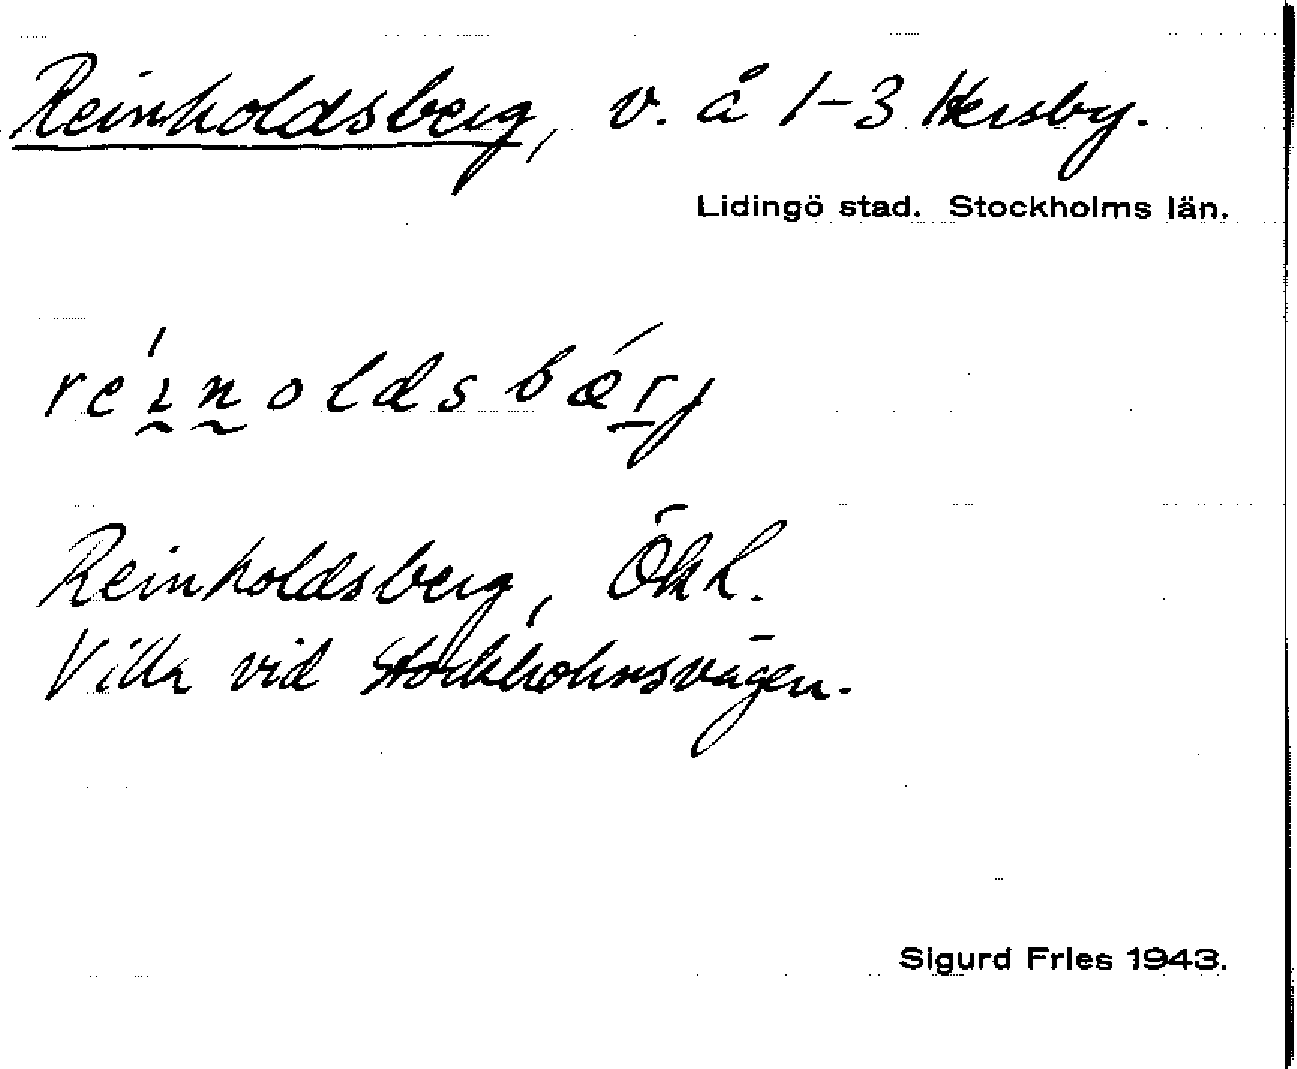 Reinholdsberg, v. å 1-3 Hersby.
Lidingö stad. Stockholms län.
réɩnoldsbǽrj
Reinholdsberg, ÖkL.
Villa vid Stockholmsvägen.
Sigurd Fries 1943.